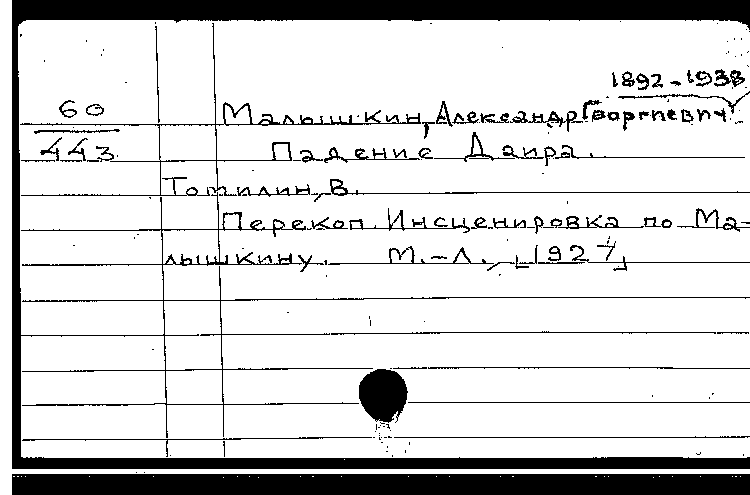 1892-1938
60
443
Малышкин, Александр Георгиевич.
Падение Даира.
Томилин, В.
Перекоп. Инсценировка по Ма-
лышкину. М.-Л., [1927]